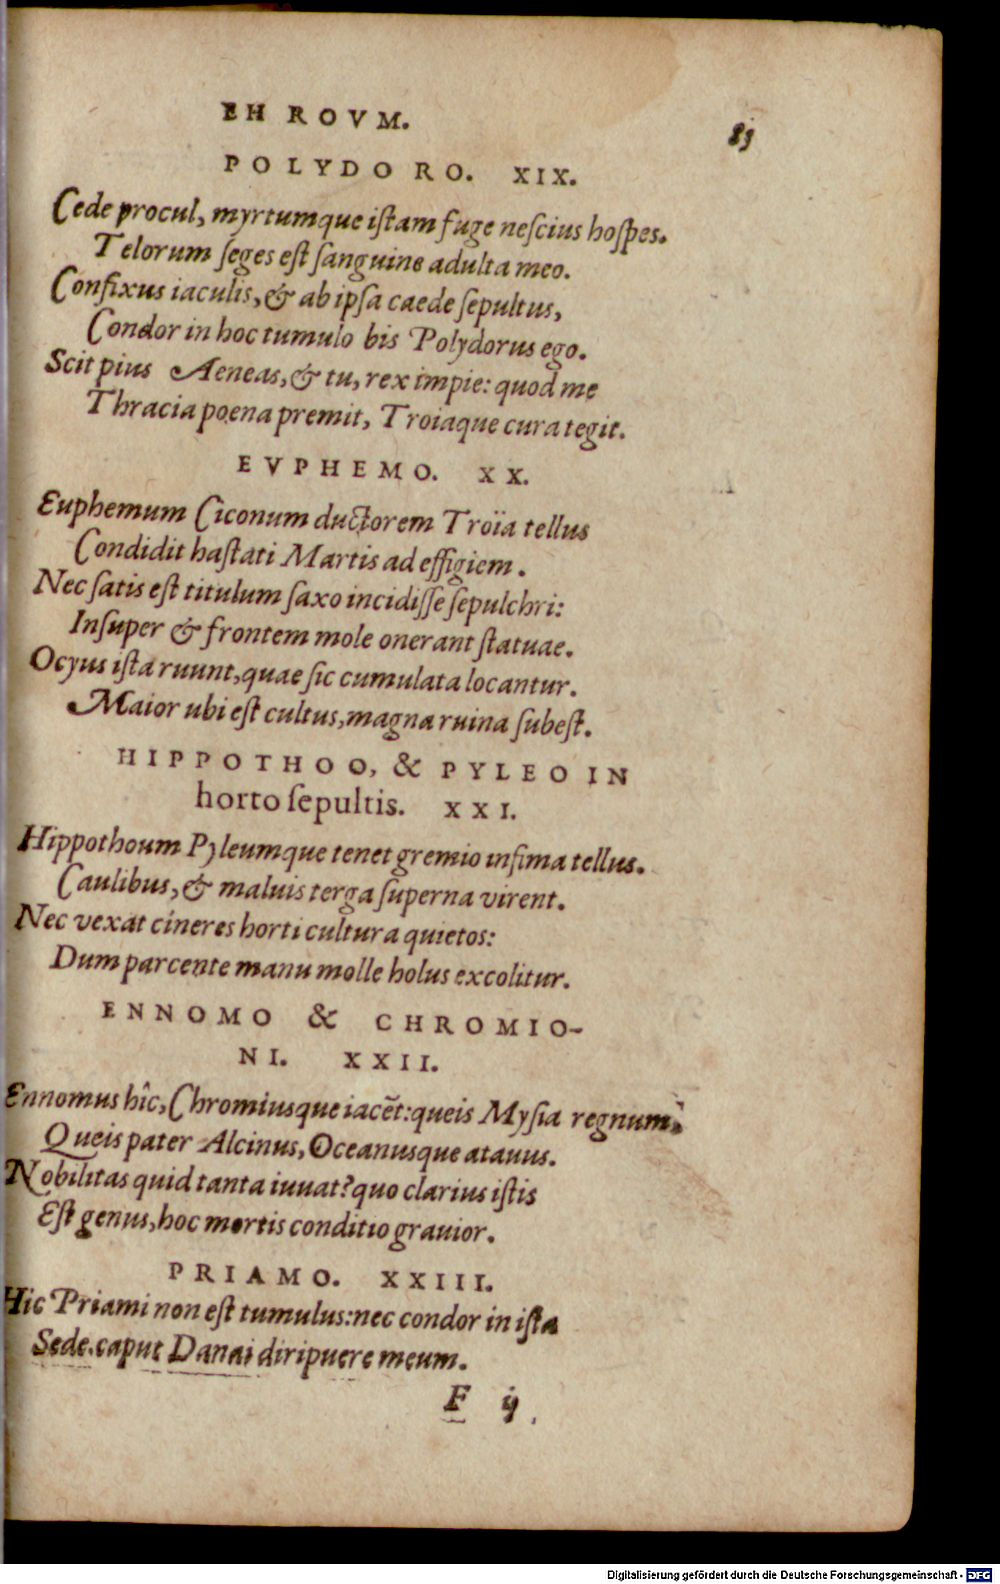 EHROVM.
83
POLYDORO. XIX.
Cede procul, myrtumque iſtam fuge neſcius hoſpes.
Telorum ſeges eſt ſanguine adulta meo.
Confixus iaculis, & ab ipſa caede ſepultus,
Condor in hoc tumulo bis Polydorus ego.
Scit pius Aeneas, & tu, rex impie: quod me
Thracia poena premit, Troiaque cura tegit.
EVPHEMO. XX.
Euphemum Ciconum ductorem Troïa tellus
Condidit haſtati Martis ad effigiem.
Nec ſatis eſt titulum ſaxo incidiſſe ſepulchri:
Inſuper & frontem mole onerant ſtatuae.
Ocyus iſta ruunt, quae ſic cumulata locantur.
Maior ubi eſt cultus, magna ruina ſubeſt.
HIPPOTHOO, & PYLEO IN
horto ſepultis. XXI.
Hippothoum Pyleumque tenet gremio infima tellus.
Caulibus, & maluis terga ſuperna virent.
Nec vexat cineres horti cultura quietos:
Dum parcente manu molle holus excolitur.
ENNOMO & CHROMIO-
NI. XXII.
Ennomus hîc, Chromiusque iacēt: queis Myſia regnum.
Queis pater Alcinus, Oceanusque atauus.
Nobilitas quid tanta iuuat? quo clarius iſtis
Eſt genus, hoc mortis conditio grauior.
PRIAMO. XXIII.
Hic Priami non eſt tumulus: nec condor in iſta
Sede. caput Danai diripuere meum.
F ij
Digitalisierung gefördert durch die Deutsche Forschungsgemeinschaft - DFG